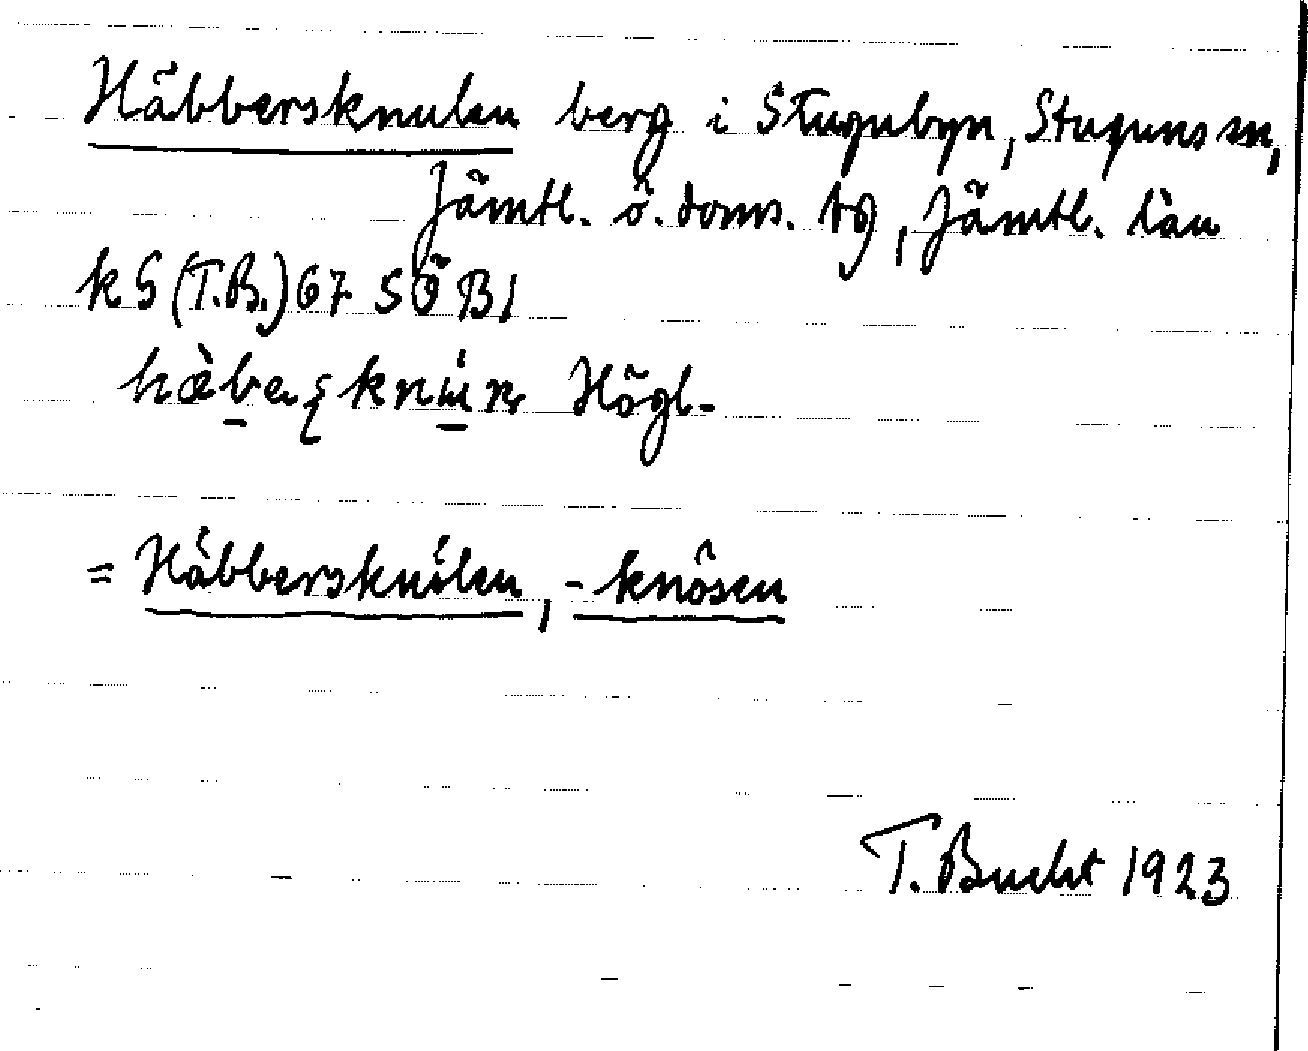 Häbbersknulen berg i Stugubyn, Stuguns sn,
Jämtl. ö. doms. tg, Jämtl. län
k S (T.B.) 67 SÖ B1
Högl.
= Häbbersknulen, -knösen
T. Bucht 1923